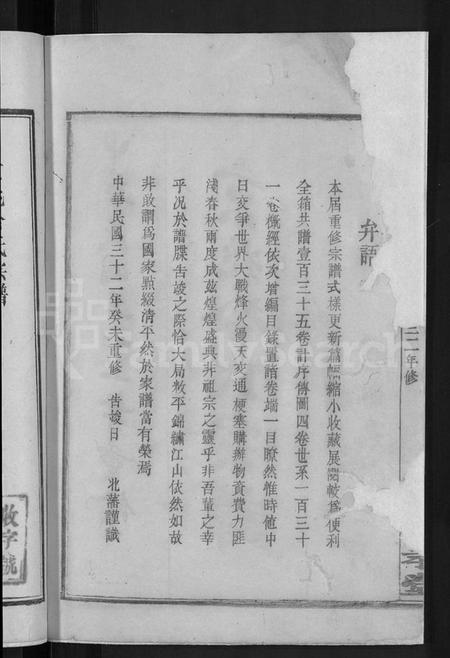 弁語
本屆重修宗譜式樣更新篇幅縮小收藏展閱較爲便利
全箱共譜壹百三十五卷計序傳圖四卷世系一百三十
一卷槪經依次增編目錄置諸卷端一目瞭然惟時値中
日交爭世界大戰烽火漫天交通梗塞購辦物資費力匪
淺春秋兩度成茲煌煌盛典非祖宗之靈乎非吾輩之幸
乎况於譜牒告竣之際恰大局敉平錦繡江山依然如故
非敢謂爲國家點綴淸平然於家譜當有榮焉
中華民國三十二年癸未重修 告竣日 北藩謹識
二年修
堂
氏宗譜
字號
FamilySearch